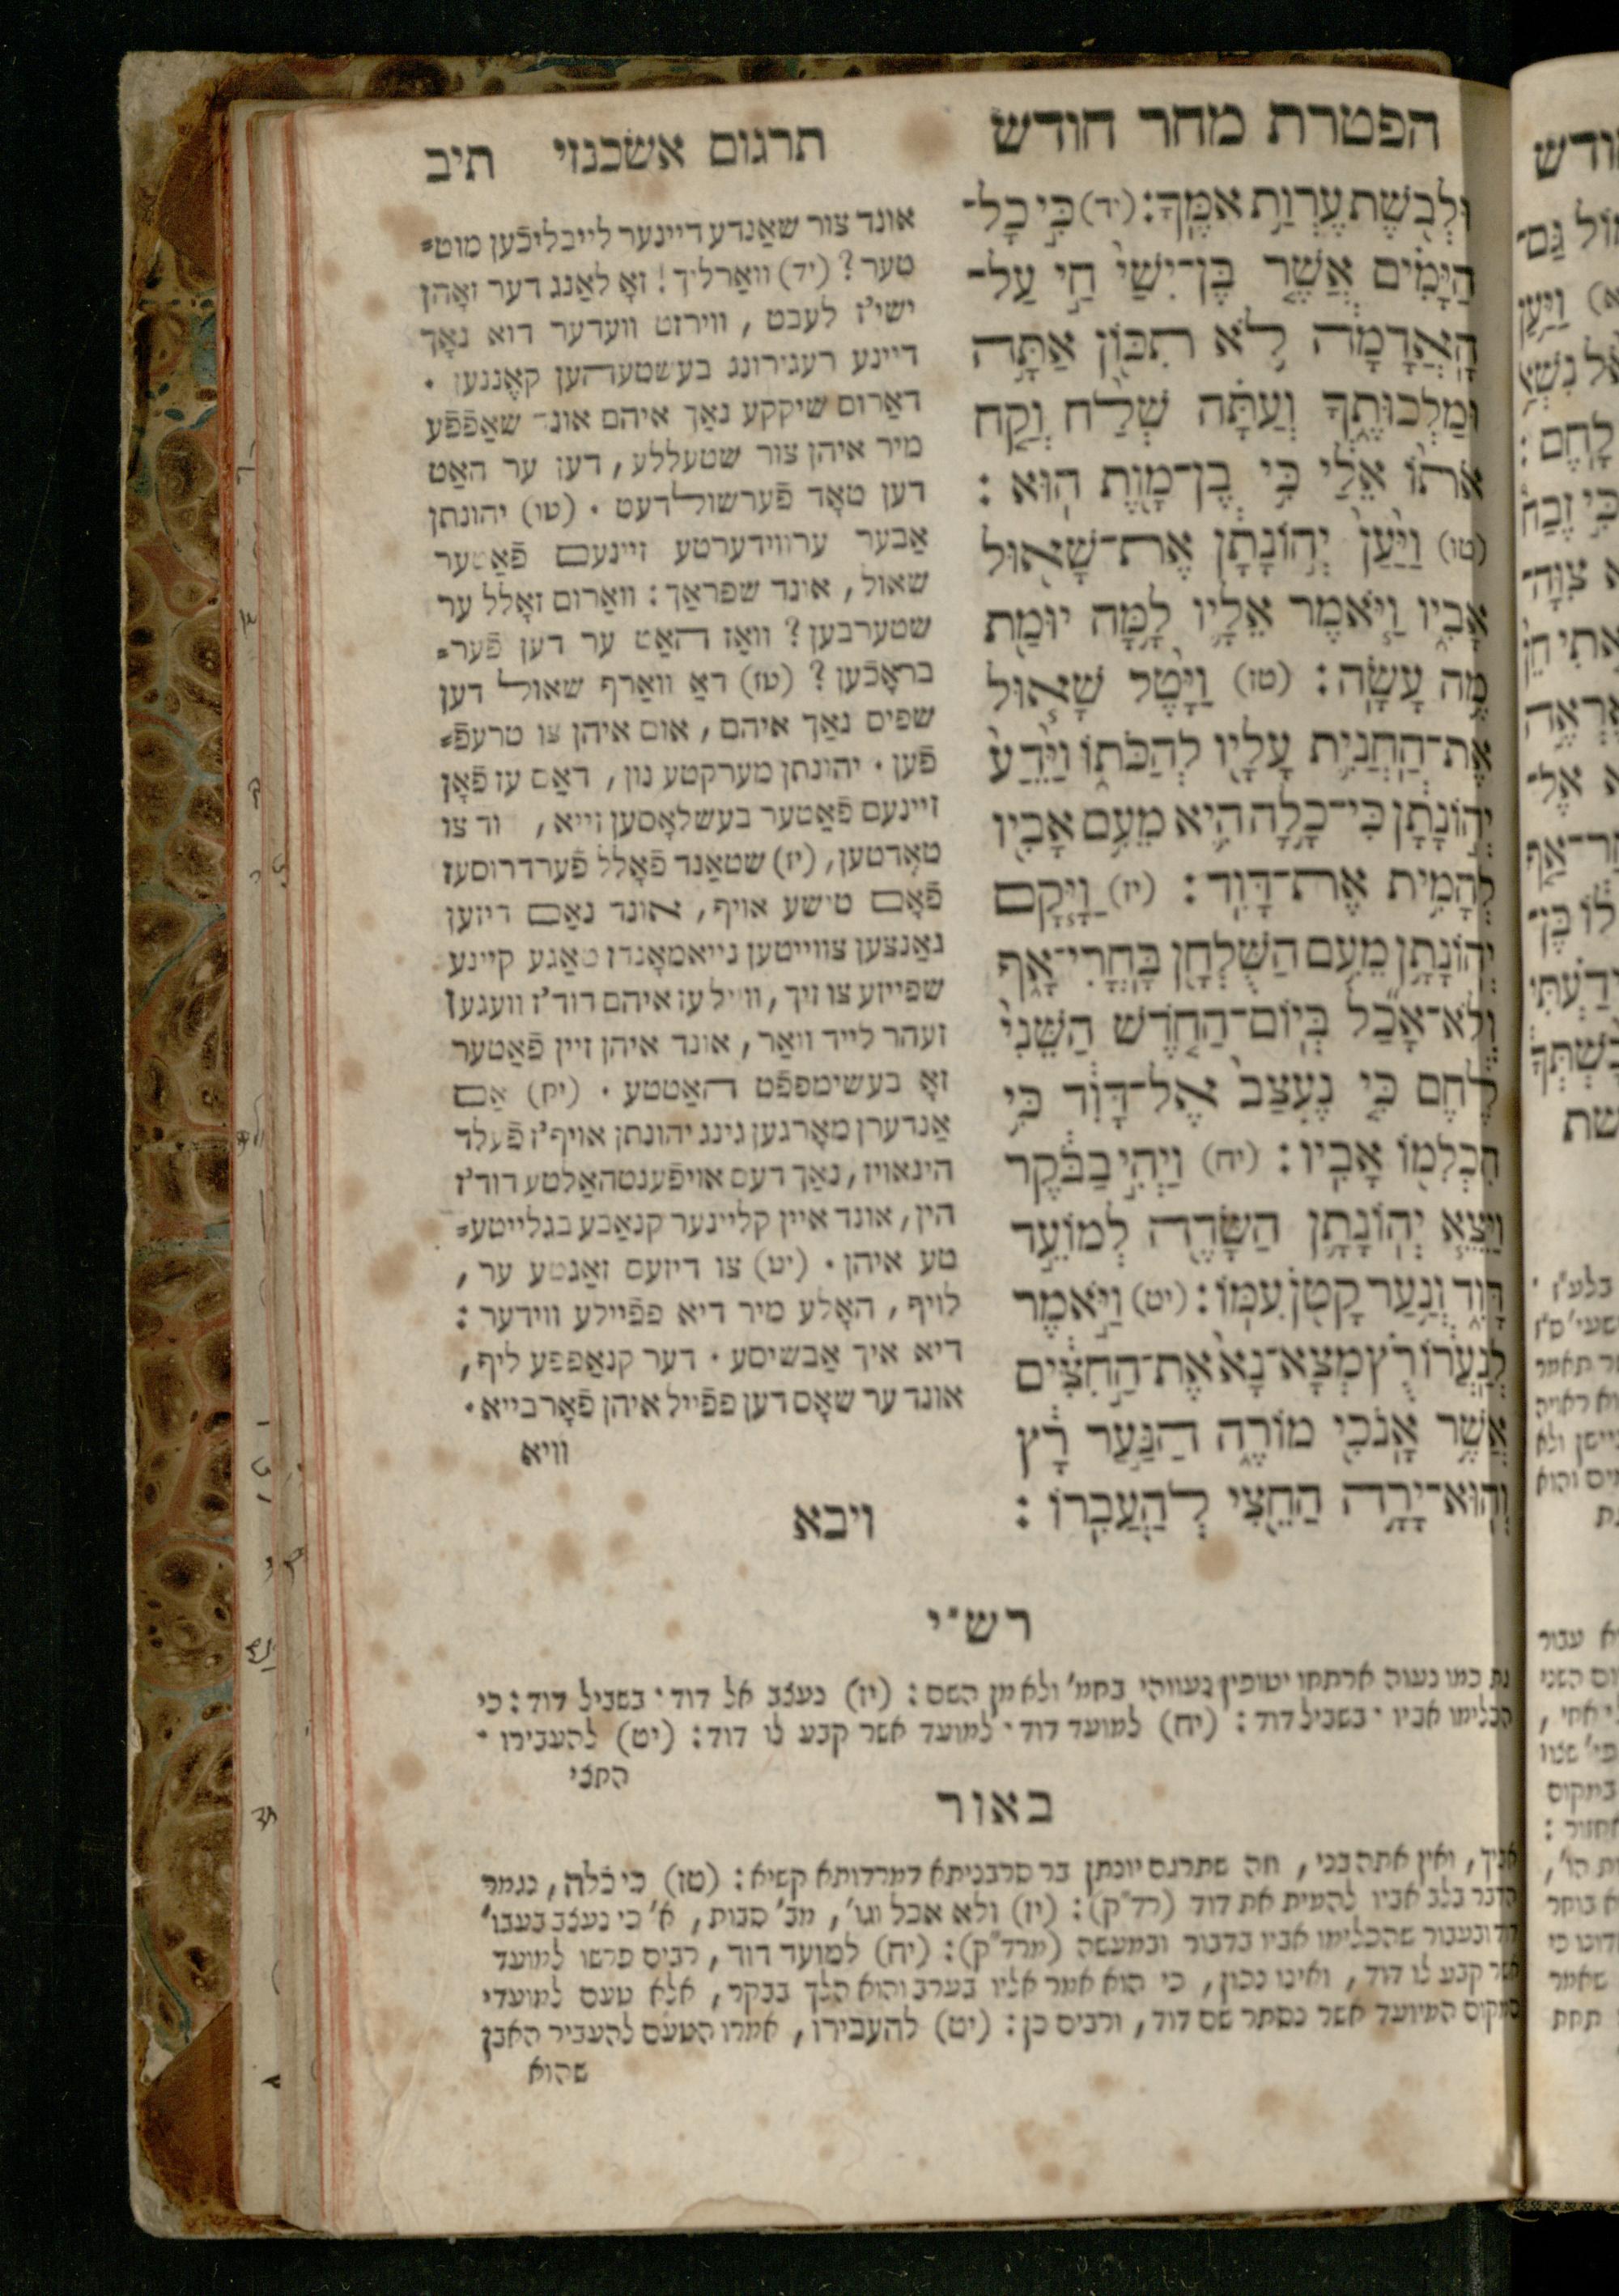 הפטרת מחר חודש
וּלְבֹשֶׁת עֶרְוַת אִמֶּךָ: (יד) כִּי כָל־
הַיָּמִים אֲשֶׁר בֶּן־יִשַׁי חַי עַל־
הָאֲדָמָה לֹא תִכּוֹן אַתָּה
וּמַלְכוּתֶךָ וְעַתָּה שְׁלַח וְקַח
אֹתוֹ אֵלַי כִּי בֶן־מָוֶת הוּא:
(טו) וַיַּעַן יְהוֹנָתָן אֶת־שָׁאוּל
אָבִיו וַיֹּאמֶר אֵלָיו לָמָּה יוּמַת
מֶה עָשָׂה: (טז) וַיָּטֶל שָׁאוּל
אֶת־הַחֲנִית עָלָיו לְהַכֹּתוֹ וַיֵּדַע
יְהוֹנָתָן כִּי־כָלָה הִיא מֵעִם אָבִיו
לְהָמִית אֶת־דָּוִד: (יז) וַיָּקָם
יְהוֹנָתָן מֵעִם הַשֻּׁלְחָן בָּחֳרִי־אָף
וְלֹא־אָכַל בְּיוֹם־הַחֹדֶשׁ הַשֵּׁנִי
לֶחֶם כִּי נֶעְצַב אֶל־דָּוִד כִּי
הִכְלִמוֹ אָבִיו: (יח) וַיְהִי בַבֹּקֶר
וַיֵּצֵא יְהוֹנָתָן הַשָּׂדֶה לְמוֹעֵד
דָּוִד וְנַעַר קָטֹן עִמּוֹ: (יט) וַיֹּאמֶר
לְנַעֲרוֹ רֻץ מְצָא־נָא אֶת־הַחִצִּים
אֲשֶׁר אָנֹכִי מוֹרֶה הַנַּעַר רָץ
וְהוּא־יָרָה הַחֵצִי לְהַעֲבִרוֹ:
ויבא
תרגום אשכנזי תיב
אונד צור שאַנדע דיינער לייבליכֿען מוט⸗
טער? (יד) וואַרליך! זאָ לאַנג דער זאָהן
ישי'ז לעבט, ווירזט וועדער דוא נאָך
דיינע רעגירונג בעשטעהען קאָננען.
דאַרום שיקקע נאַך איהם אונד שאַפֿפֿע
מיר איהן צור שטעללע, דען ער האַט
דען טאָד פֿערשולדעט. (טו) יהונתן
אַבער ערווידערטע זיינעם פֿאַטער
שאול, אונד שפראַך: וואַרום זאָלל ער
שטערבען? וואַז האַט ער דען פֿער⸗
בראָכֿען? (טז) דאַ וואַרף שאול דען
שפיס נאַך איהם, אום איהן צו טרעפֿ⸗
פֿען. יהונתן מערקטע נון, דאַס עז פֿאָן
זיינעם פֿאַטער בעשלאָסען זייא, דוד צו
טאָדטען, (יז) שטאַנד פֿאָלל פֿערדרוסעז
פֿאָם טישע אויף, אונד נאַם דיזען
גאַנצען צווייטען נייאמאָנדז טאַגע קיינע
שפייזע צו זיך, ווייל עז איהם דוד'ז וועגען
זעהר לייד וואַר, אונד איהן זיין פֿאַטער
זאָ בעשימפפֿט האַטטע. (יח) אַם
אַנדערן מאָרגען גינג יהונתן אויף'ז פֿעלד
הינאויז, נאַך דעם אויפֿענטהאַלטע דוד'ז
הין, אונד איין קליינער קנאַבע בגלייטע⸗
טע איהן. (יט) צו דיזעם זאַגטע ער,
לויף, האָלע מיר דיא פפֿיילע ווידער:
דיא איך אַבשיסע. דער קנאַפפע ליף,
אונד ער שאָס דען פפֿייל איהן פֿאָרבייא.
וויא
רש"י
נת כמו נעוה ארתחו יטופין נעווהי בחמ' ולא מן השם: (יז) נעצב אל דוד. בשביל דוד: כי
הכלימו אביו. בשביל דוד: (יח) למועד דוד. למועד אשר קבע לו דוד: (יט) להעבירו.
החצי
באור
אביך, ואין אתה בני, וזה שתרגם יונתן בר סרבניתא דמרדותא קשיא: (טז) כי כלה, נגמר
הדבר בלב אביו להמית את דוד (רד"ק): (יז) ולא אכל וגו', מב' סבות, א' כי נעצב בעבו'
דוד ובעבור שהכלימו אביו בדבור ובמעשה (מרד"ק): (יח) למועד דוד, רבים פרשו למועד
אשר קבע לו דוד, ואינו נכון, כי הוא אמר אליו בערב והוא הלך בבקר, אלא טעם למועדי
המקום המיועד אשר נסתר שם דוד, ורבים כן: (יט) להעבירו, אמרו הטעם להעביר האבן
שהוא